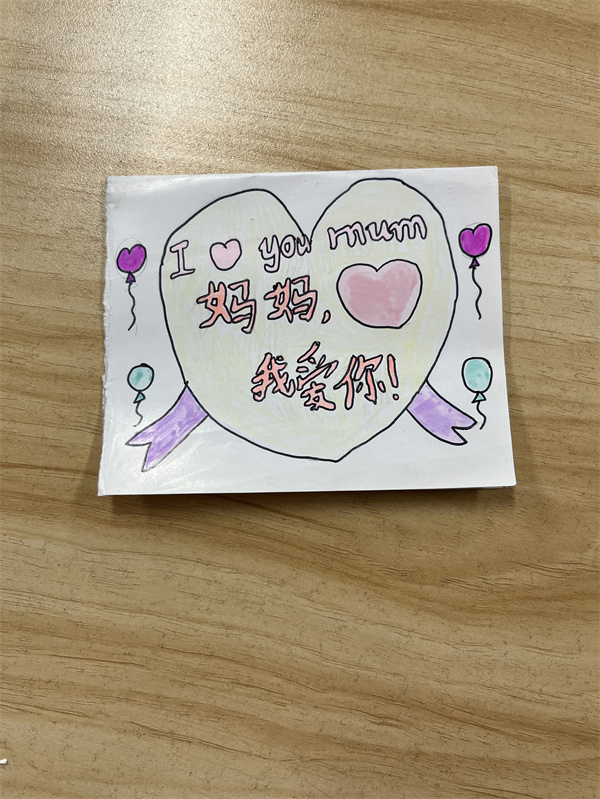 I ♡ you mum
妈妈,
我爱你!